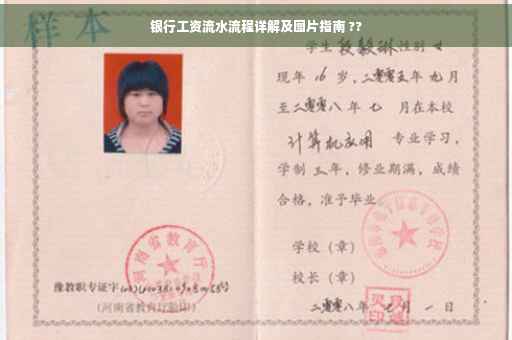 银行工资流水流程详解及图片指南 ??
样本
学生 段毅琳 性别 女
现年 16 岁,二零零五年 九 月
至二零零八 年 七 月在本校
计算机应用 专业学习,
学制 三 年,修业期满,成绩
合格,准予毕业。
学校(章)
校长(章)
二零零八年 七 月 一 日
河南省教育厅
豫教职专证字
(河南省教育厅验印)